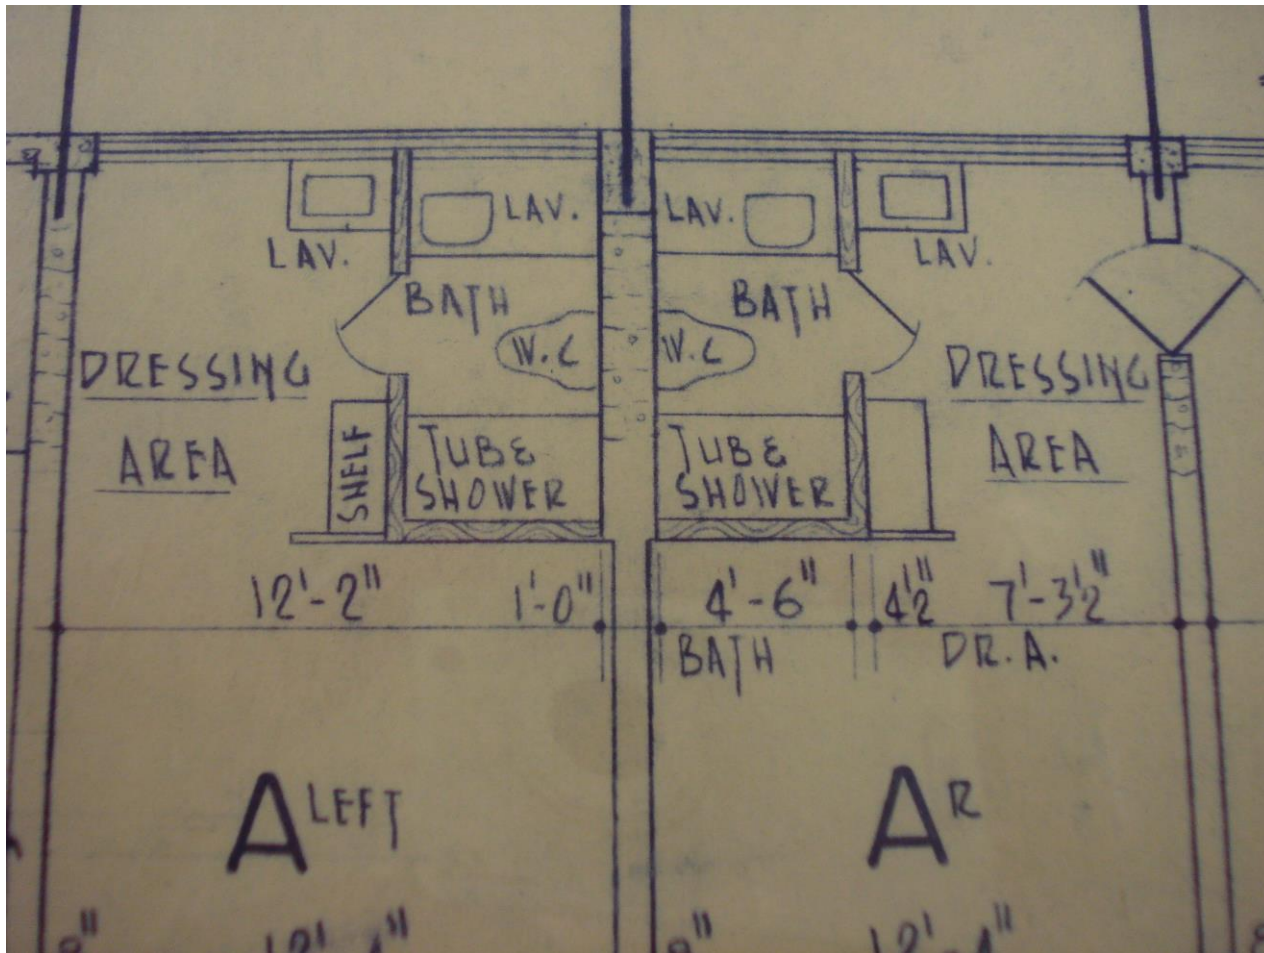 LAV.
LAV.
LAV.
LAV.
BATH
BATH
W.C
W.C
DRESSING
AREA
DRESSING
AREA
SHELF
TUB &
SHOWER
TUB &
SHOWER
12'-2"
1'-0"
4'-6"
4½"
7'-3½"
BATH
DR. A.
A LEFT
A R